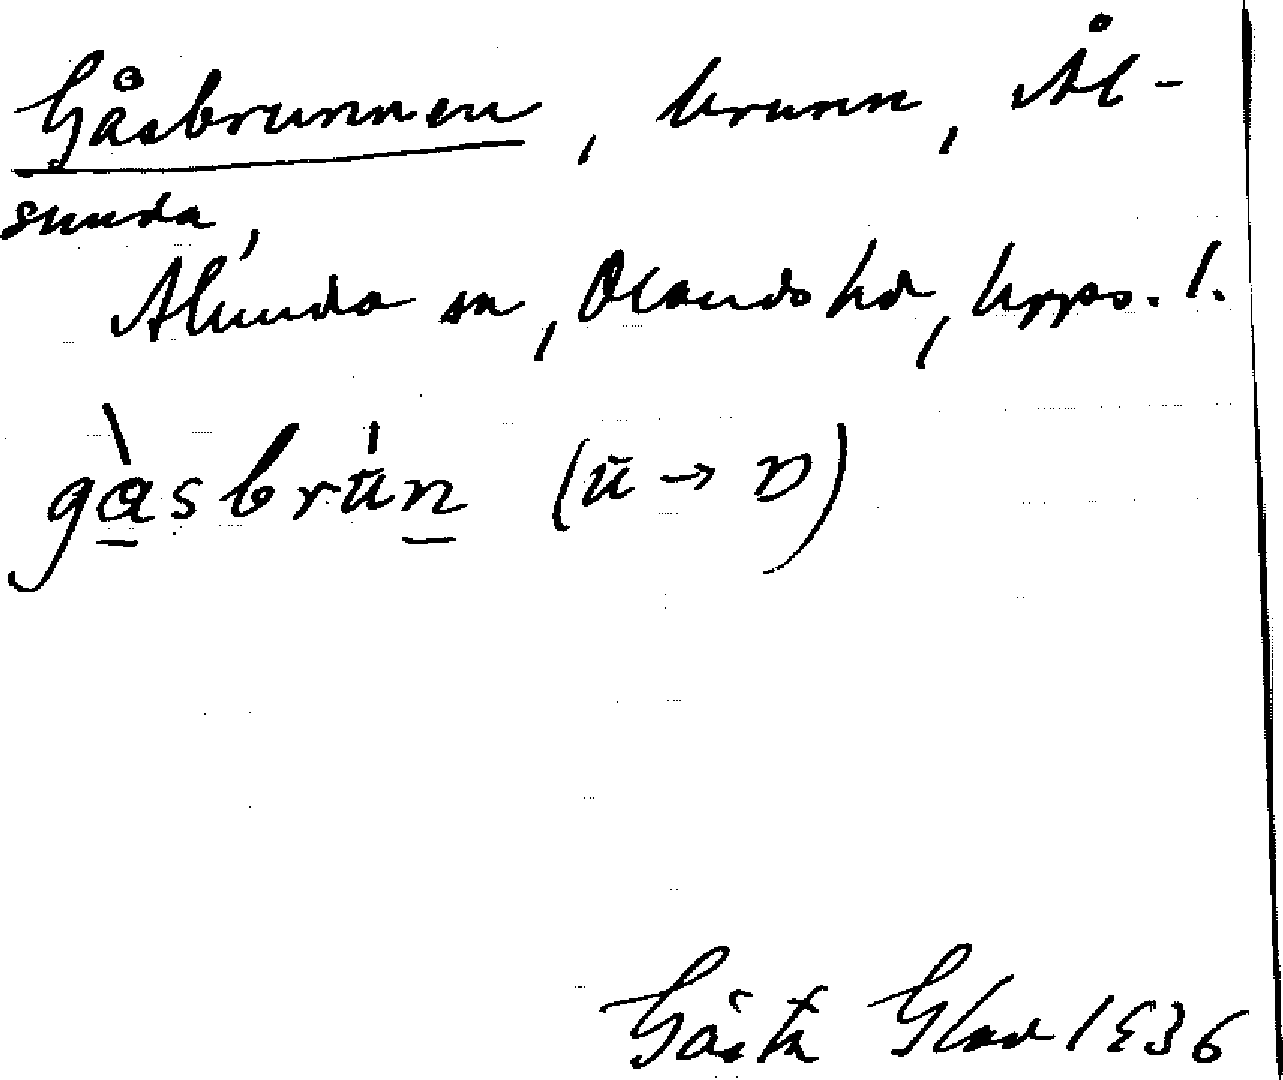 Gåsbrunnen, brunn, Ål-
sunda,
Alunda sn, Olands hd, Upps. l.
gàsbrūn (ū → ʋ)
Gösta Glad 1936